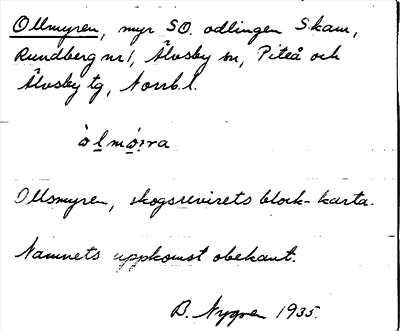 Ollmyren, myr SO. odlingen Skam,
Rundberg nr 1, Älvsby sn, Piteå och
Älvsby tg, Norrb. l.
òlmo̱ra
Ollsmyren, skogsrevirets block-karta.
Namnets uppkomst obekant.
B. Nygren 1935.